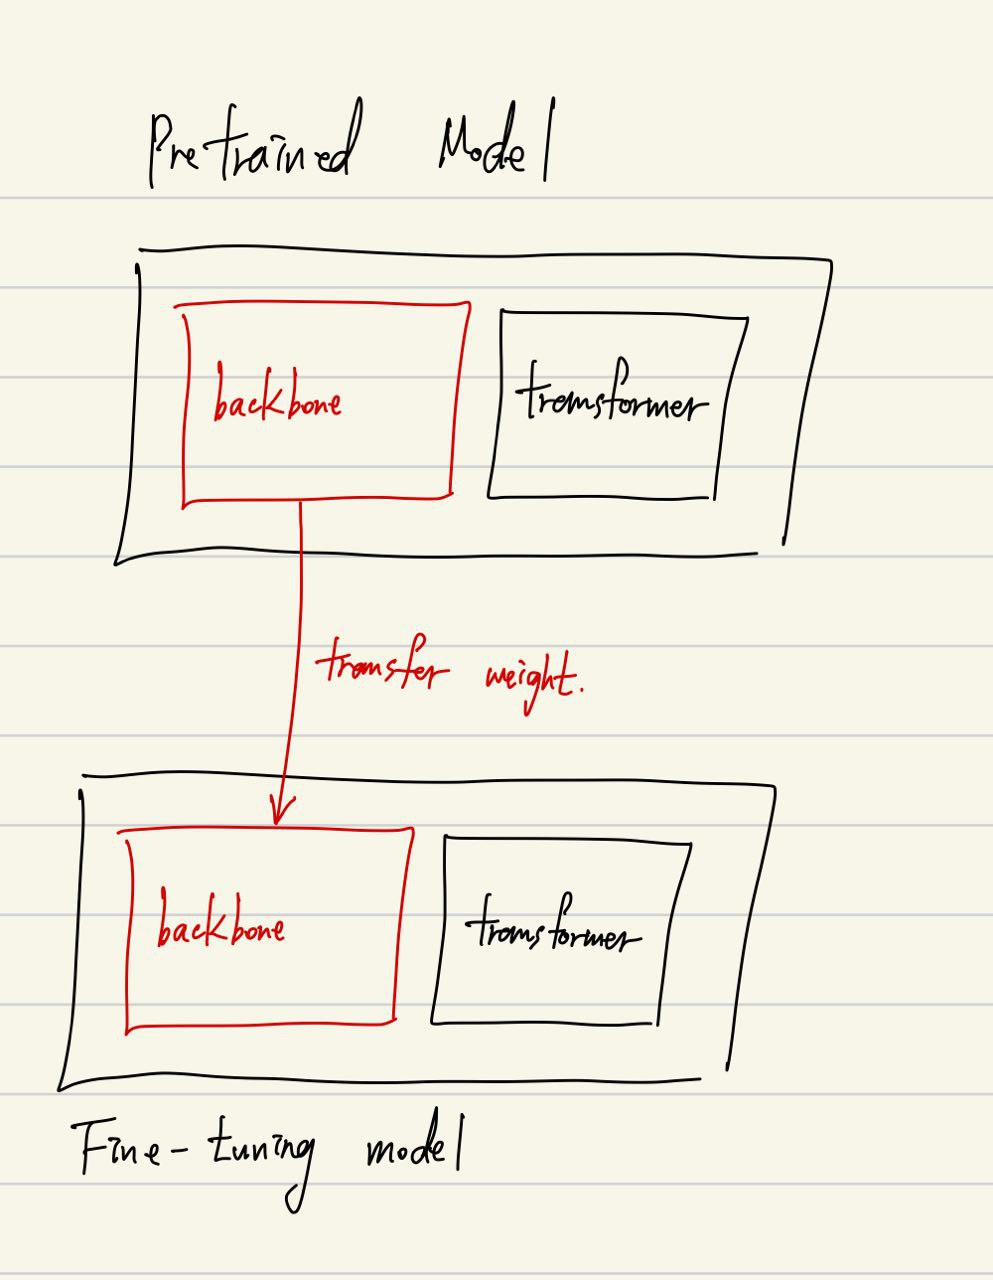 Pretrained Model
backbone transformer
transfer weight.
backbone transformer
Fine-tuning model